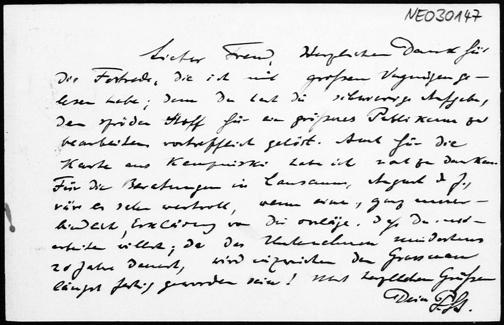 NEO30147
Lieber Freund, Herzlichen Dank für
die Festrede, die ich mit großem Vergnügen ge-
lesen habe; denn Du hast die schwierige Aufgabe,
den spröden Stoff für ein größeres Publikum zu
bearbeiten vortrefflich gelöst. Auch für die
Karte aus habe ich noch zu danken.
Für die Beratungen in Lausanne, August d. J.,
wäre es sehr wertvoll, wenn eine, ganz unver-
bindliche, Erklärung von Dir vorläge, daß Du mit-
arbeiten willst; da das Unternehmen mindestens
20 Jahre dauert, wird inzwischen
längst fertig geworden sein! Mit herzlichen Grüßen
Dein